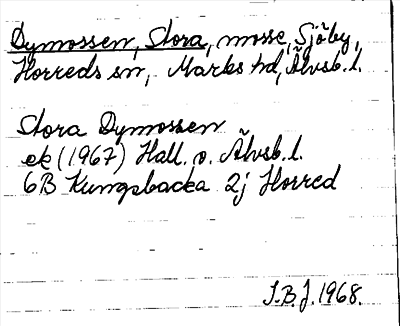 Dymossen, Stora, mosse, Sjöby,
Horreds sn, Marks hd, Älvsb. l.
Stora Dymossen
ek (1967) Hall. o. Älvsb. l.
6B Kungsbacka 2j Horred
J.B.J. 1968.